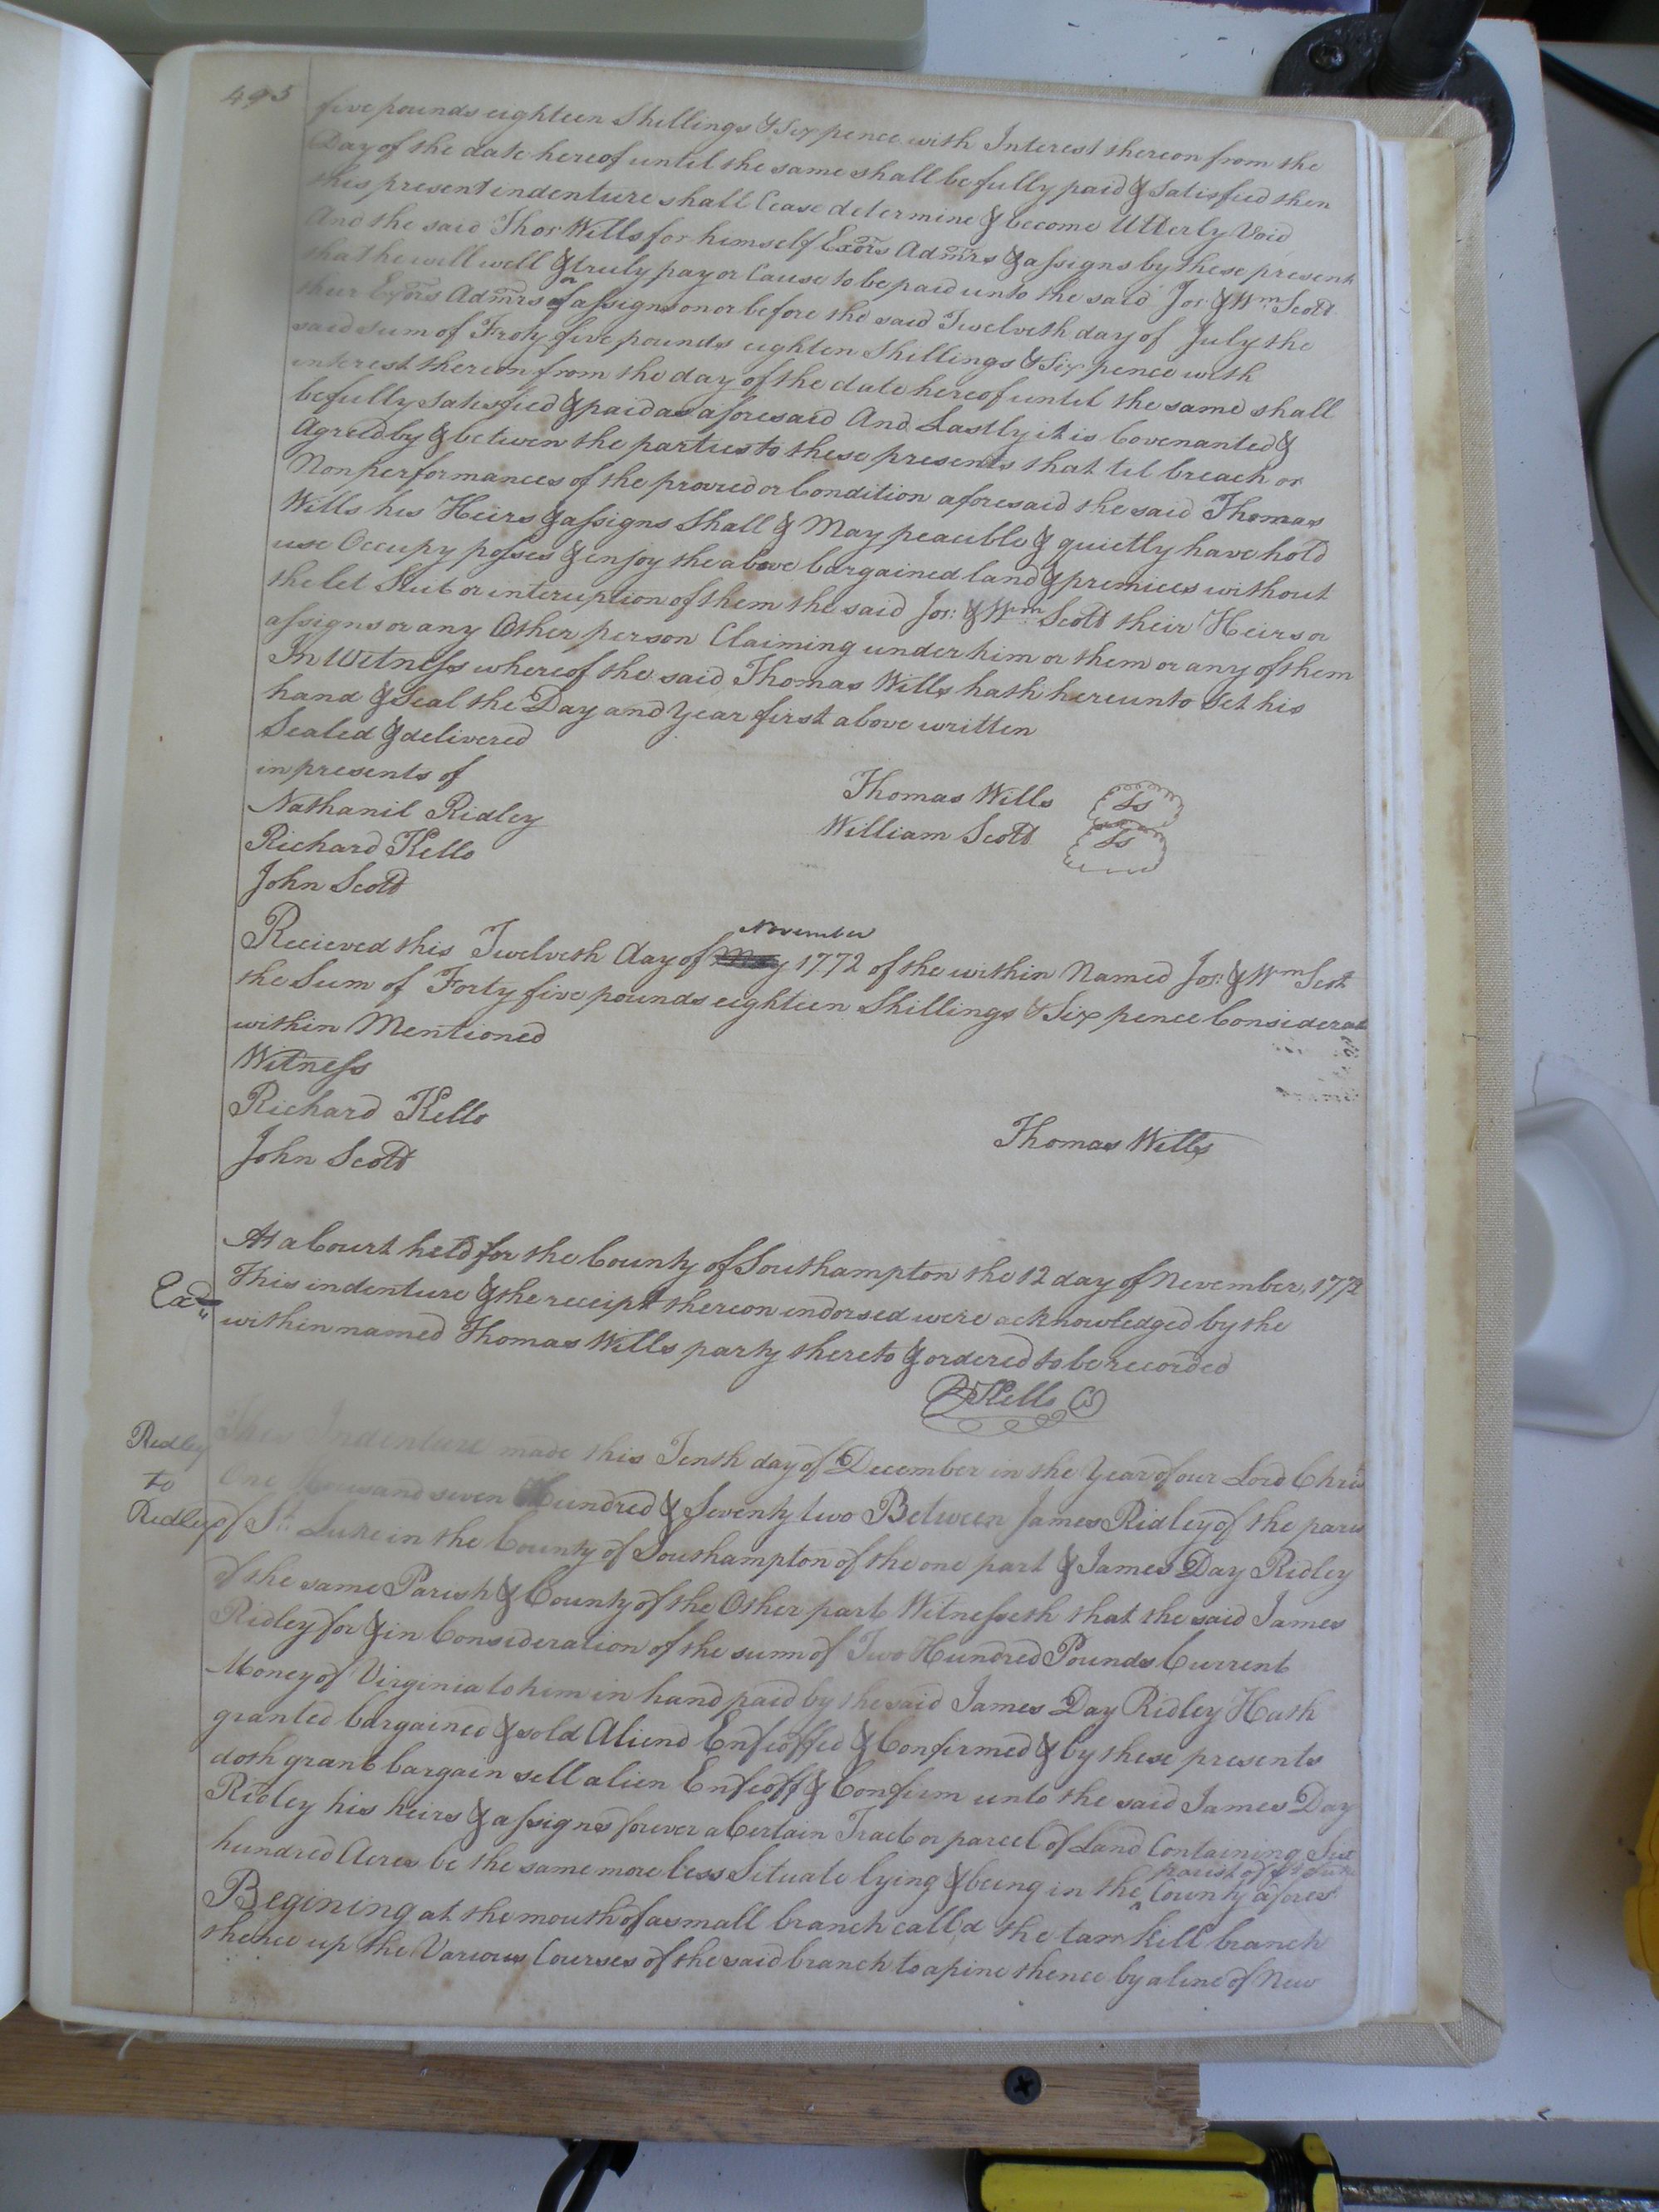 495
five pounds eighteen Shillings & Six pence with Interest thereon from the
Day of the date hereof until the same shall be fully paid & Satisfied then
this present indenture shall Cease determine & become Utterly Void
And the said Thos Wills for himself Exors Admrs & assigns by these present
that he will well & truly pay or Cause to be paid unto the said Jos: & Wm Scott
their Exors Admrs or assigns on or before the said Twelveth day of July the
said sum of Froty five pounds eighten Shillings & Six pence with
interest thereon from the day of the date hereof until the same shall
be fully Satisfied & paid as aforesaid And Lastly it is Covenanted &
Agreed by & between the parties to these presents that til breach or
Nonperformances of the proved or Condition aforesaid the said Thomas
Wills his Heirs & assigns Shall & May peacible & quietly have hold
use Occupy posses & enjoy the above bargained land & premices without
the let Suit or interuption of them the said Jos: & Wm Scott their Heirs or
assigns or any Other person Claiming under him or them or any of them
In Witness whereof the said Thomas Wills hath hereunto Set his
hand & Seal the Day and Year first above written
Sealed & delivered
in presents of
Nathanil Ridley
Richard Kello
John Scott
Thomas Wills Ls
William Scott Ls
November
Recieved this Twelveth day of May 1772 of the within Named Jos: & Wm Scot
the Sum of Forty five pounds eighteen Shillings & Six pence Considerat
within Mentioned
Witness
Richard Kello
John Scott
Thomas Wills
At a Court held for the County of Southampton the 12 day of November, 1772
Exd
This indenture & the receipt thereon indorsed were acknowledged by the
within named Thomas Wills party thereto & ordered to be recorded
R Kello C
Ridley
to
Ridley
This Indenture made this Tenth day of December in the Year of our Lord Chris
One thousand seven Hundred & Seventy two Between James Ridley of the paris
of St. Luke in the County of Southampton of the one part & James Day Ridley
of the same Parish & County of the Other part Witnesseth that the said James
Ridley for & in Consideration of the sum of Two Hundred Pounds Current
Money of Virginia to him in hand paid by the said James Day Ridley Hath
granted bargained & sold Aliend Enfeoffed & Confirmed & by these presents
doth grant bargain sell alien Enfeoff & Confirm unto the said James Day
Ridley his heirs & assigns forever a Certain Tract or parcel of Land Containing Six
parish of St Luke
hundred Acres be the same more less Situate lying & being in the ^ County afores
Begining at the mouth of a small branch call'd the tarr kill branch
thence up the Various Courses of the said branch to a pine thence by a line of New